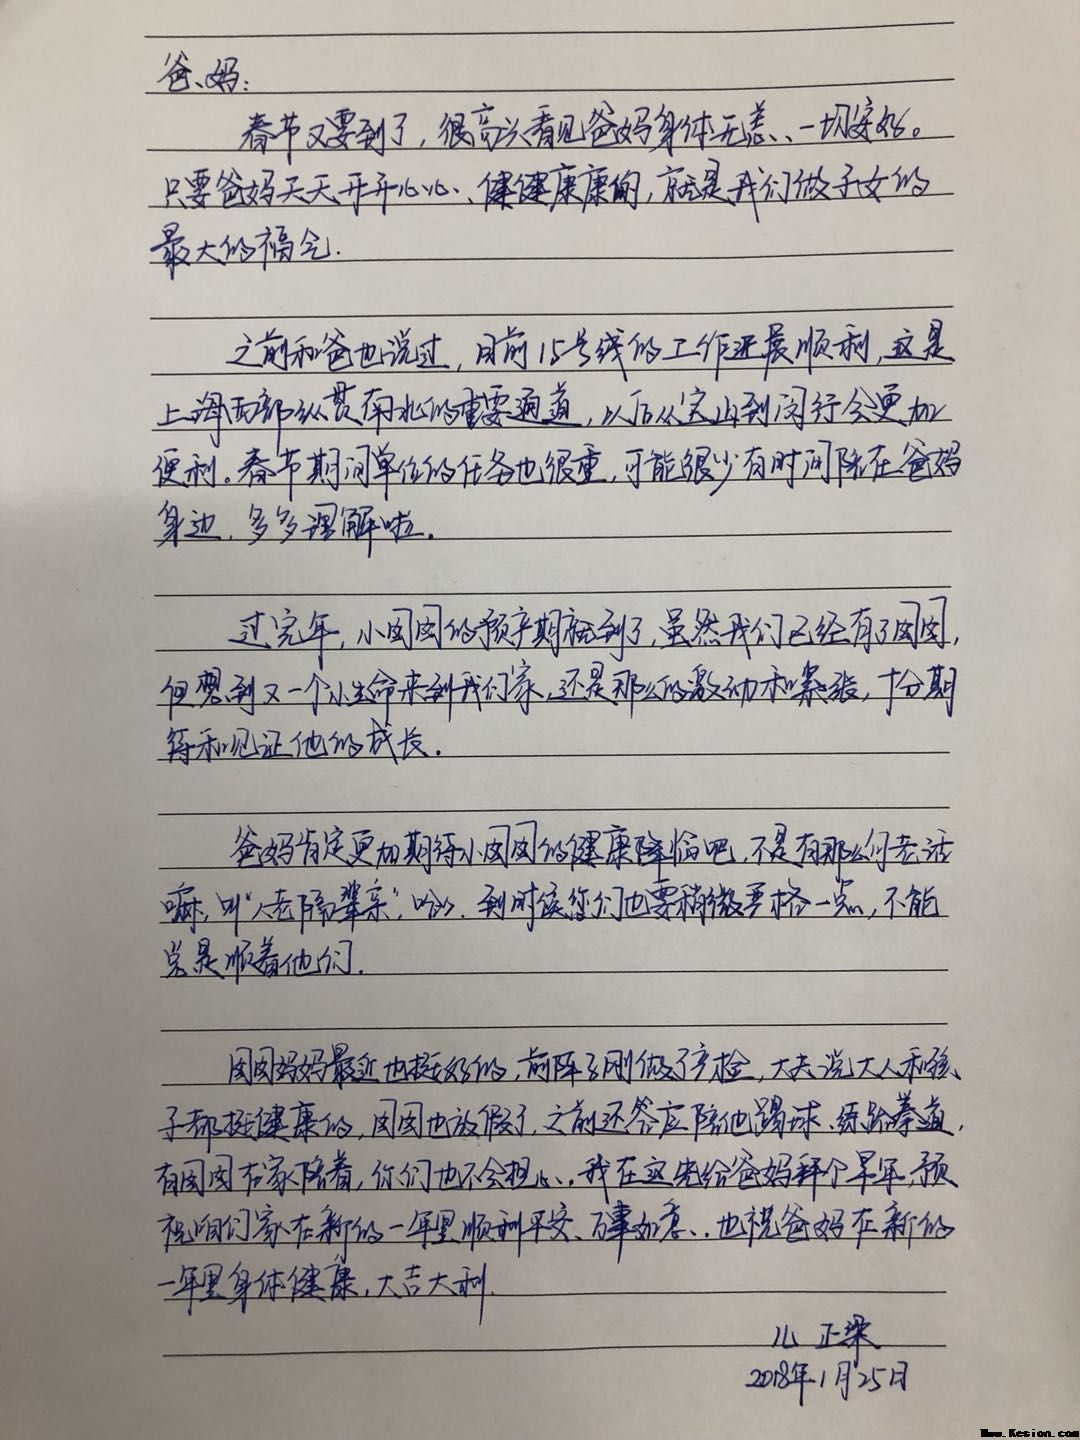 爸、妈：
春节又要到了，很高兴看见爸妈身体无恙、一切安好。
只要爸妈天天开开心心、健健康康的，就是我们做子女的
最大的福气.
之前和爸也说过，目前15号线的工作进展顺利，这是
上海西部纵贯南北的重要通道，以后从宝山到闵行会更加
便利。春节期间单位的任务也很重，可能很少有时间陪在爸妈
身边，多多理解啦。
过完年，小囡囡的预产期就到了，虽然我们已经有了囡囡，
但想到又一个小生命来到我们家，还是那么的激动和紧张，十分期
待和见证他的成长。
爸妈肯定更加期待小囡囡的健康降临吧，不是有那么句老话
嘛，叫“人老隔辈亲”，哈哈，到时候您们也要稍微严格一点，不能
总是顺着他们.
囡囡妈妈最近也挺好的，前阵子刚做了产检，大夫说大人和孩
子都挺健康的，囡囡也放假了，之前还答应陪他踢球、练跆拳道，
有囡囡在家陪着，你们也不会担心，我在这先给爸妈拜个早年，预
祝咱们家在新的一年里顺利平安、万事如意，也祝爸妈在新的
一年里身体健康，大吉大利.
儿 正梁
2018年1月25日
Www.Kesion.com